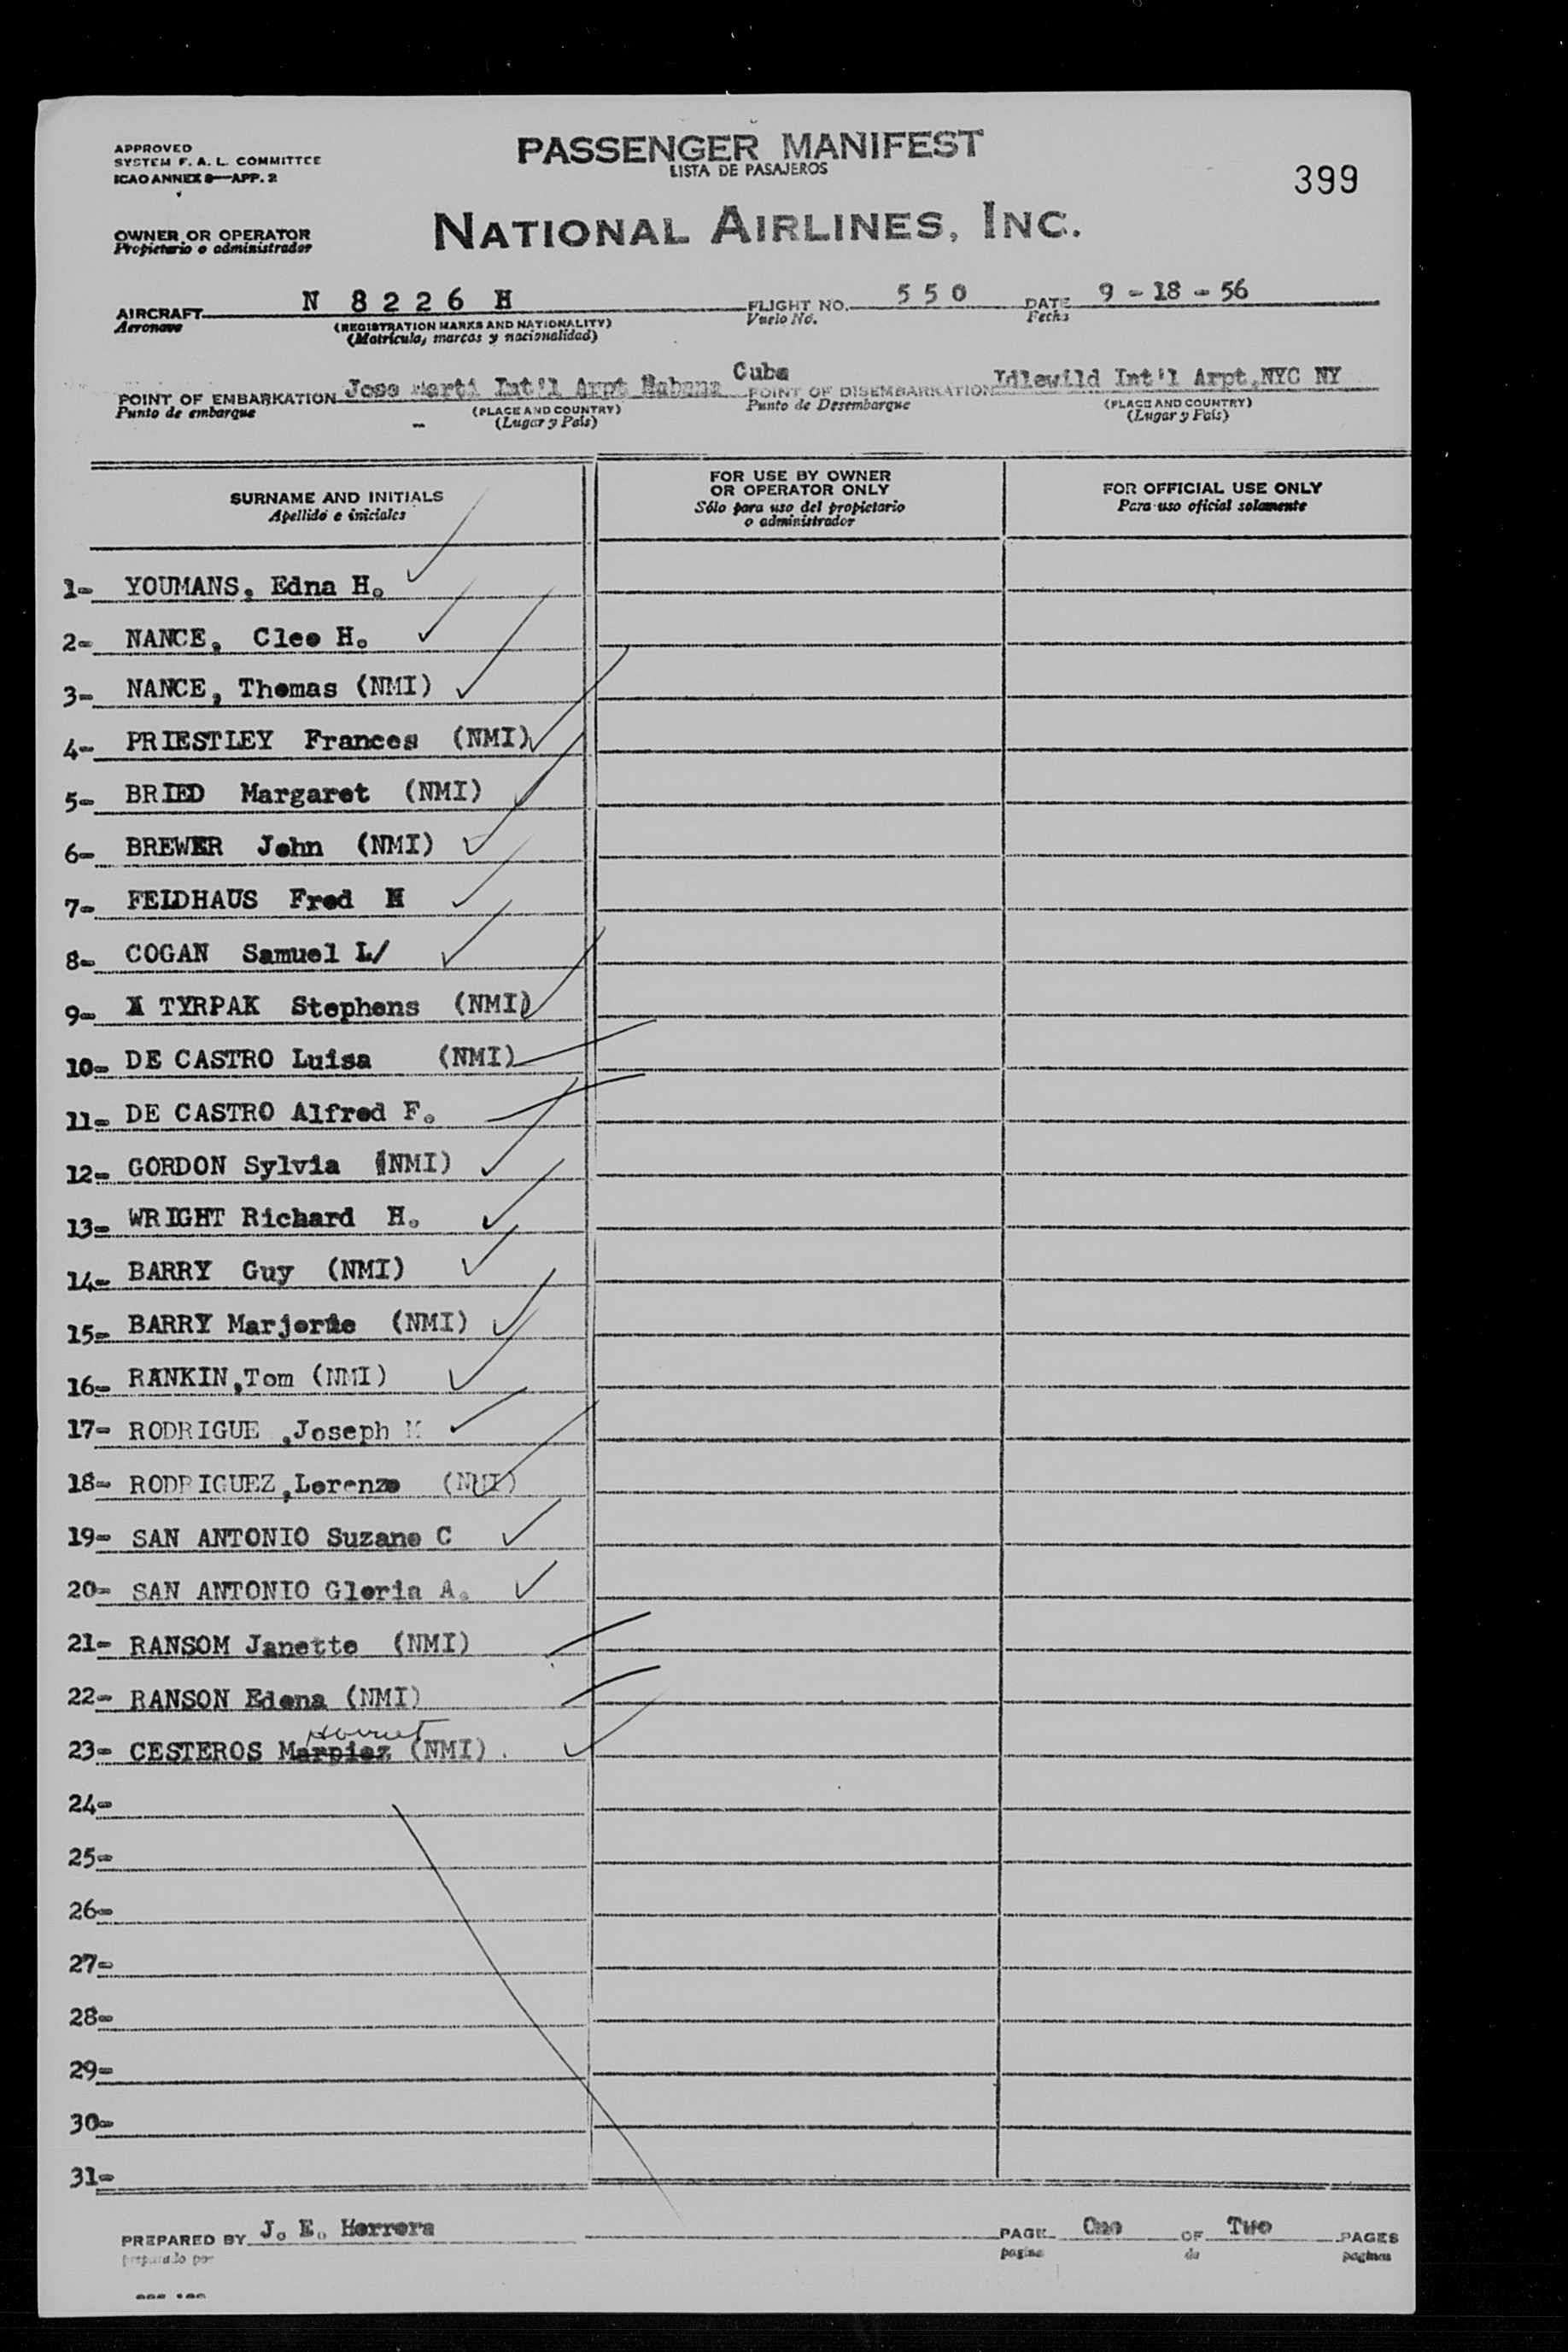 APPROVED
SYSTEM F. A. L. COMMITTEE
ICAO ANNEX 9—APP. 2
PASSENGER MANIFEST
LISTA DE PASAJEROS
399
OWNER OR OPERATOR
Propietario o administrador
NATIONAL AIRLINES, INC.
AIRCRAFT N 8226 H FLIGHT NO. 550 DATE 9-18-56
Aeronave (REGISTRATION MARKS AND NATIONALITY) Vuelo No. Fecha
(Matrícula, marcas y nacionalidad)
POINT OF EMBARKATION Jose Marti Int'l Arpt Habana Cuba POINT OF DISEMBARKATION Idlewild Int'l Arpt,NYC NY
Punto de embarque (PLACE AND COUNTRY) Punto de Desembarque (PLACE AND COUNTRY)
(Lugar y País) (Lugar y País)
SURNAME AND INITIALS
Apellido e iniciales
FOR USE BY OWNER
OR OPERATOR ONLY
Sólo para uso del propietario
o administrador
FOR OFFICIAL USE ONLY
Para uso oficial solamente
1- YOUMANS, Edna H.
2- NANCE, Cleo H.
3- NANCE, Thomas (NMI)
4- PRIESTLEY Frances (NMI)
5- BRIED Margaret (NMI)
6- BREWER John (NMI)
7- FELDHAUS Fred H
8- COGAN Samuel L/
9- X TYRPAK Stephens (NMI)
10- DE CASTRO Luisa (NMI)
11- DE CASTRO Alfred F.
12- GORDON Sylvia (NMI)
13- WRIGHT Richard H.
14- BARRY Guy (NMI)
15- BARRY Marjorie (NMI)
16- RANKIN,Tom (NMI)
17- RODRIGUE ,Joseph M
18- RODRIGUEZ,Lorenzo (NMI)
19- SAN ANTONIO Suzane C
20- SAN ANTONIO Gloria A.
21- RANSOM Janette (NMI)
22- RANSON Edena (NMI)
23- CESTEROS (NMI)
24-
25-
26-
27-
28-
29-
30-
31-
PREPARED BY J. E. Herrera PAGE One OF Two PAGES
preparado por pagina de paginas